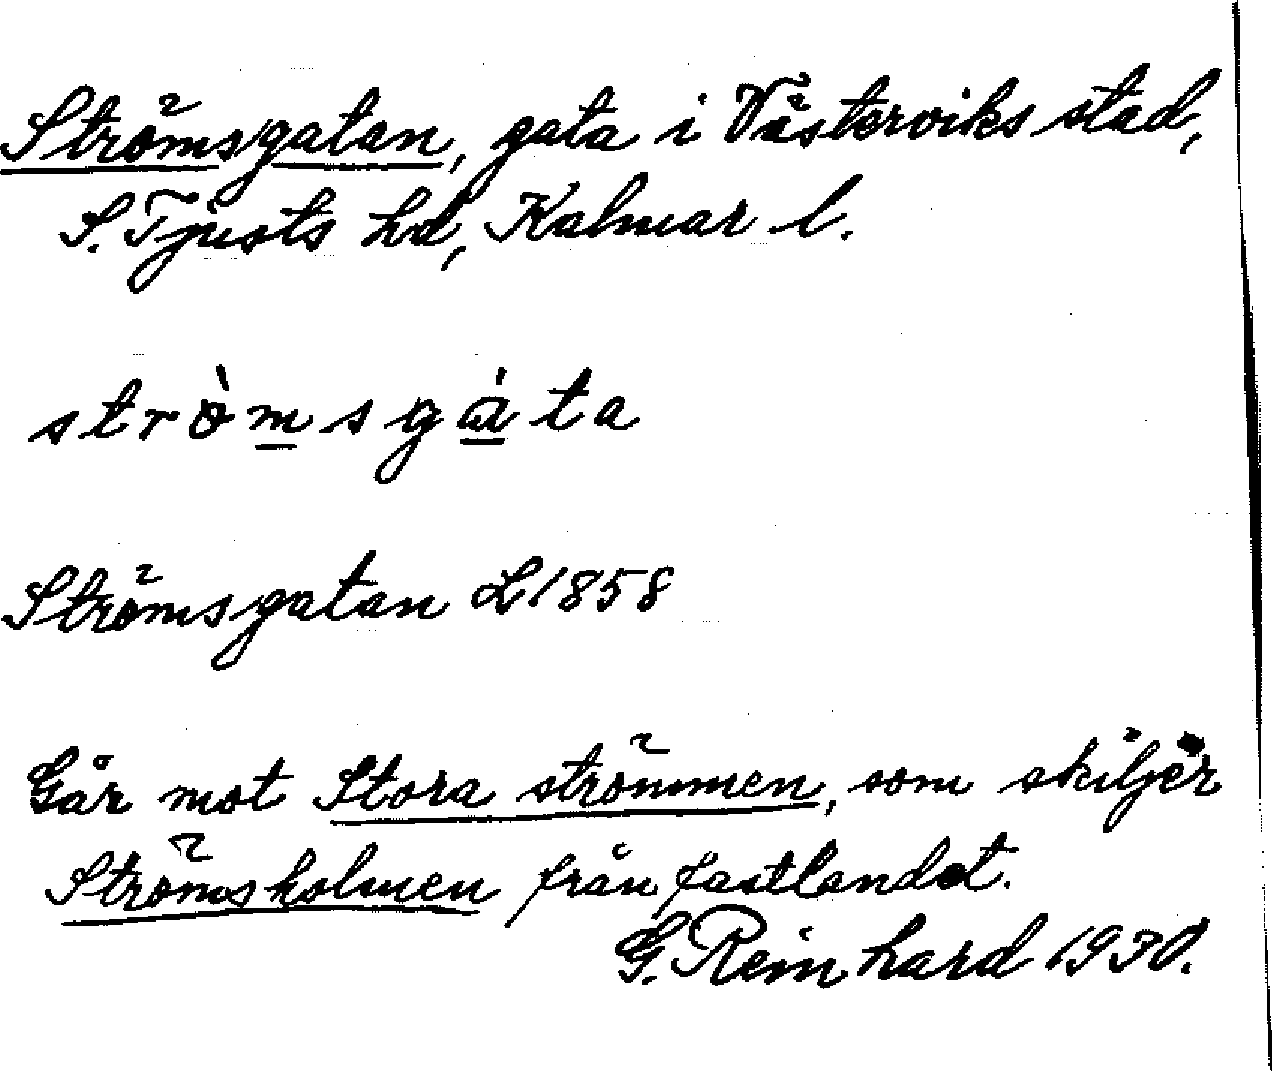 Strömsgatan, gata i Västerviks stad,
S. Tjusts hd, Kalmar l.
stròmsgáta
Strömsgatan L 1858
Går mot Stora strömmen, som skiljer
Strömsholmen från fastlandet.
G. Reinhard 1930.